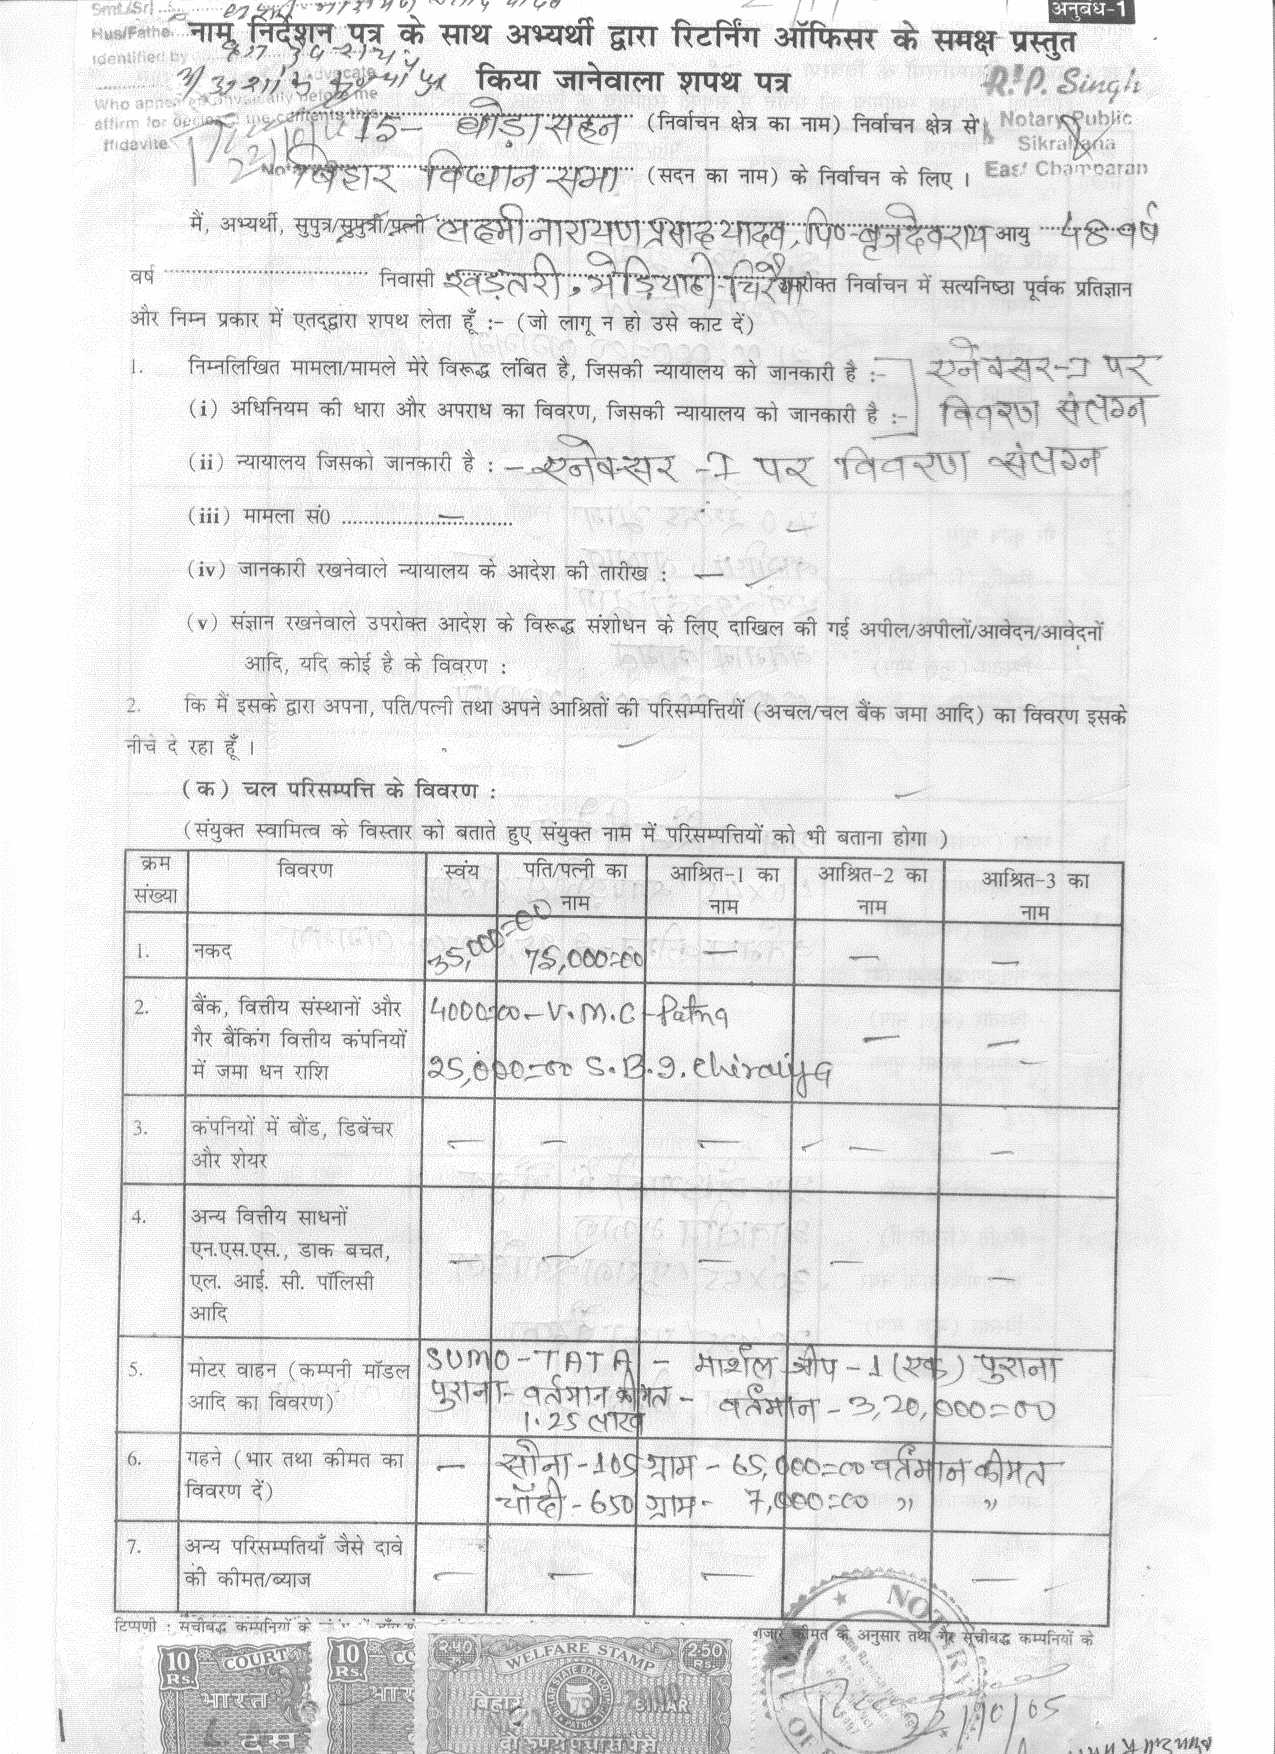 अनुबंध-1
Smt./Sri
Hus/Fathe
Identified by
Advocate
Who appeared before me
affirm for the contents this
ffidavite
नाम निर्देशन पत्र के साथ अभ्यर्थी द्वारा रिटर्निंग ऑफिसर के समक्ष प्रस्तुत
किया जानेवाला शपथ पत्र
R.P. Singh
Notary Public
Sikrahana
East Champaran
15- घोड़ासहन (निर्वाचन क्षेत्र का नाम) निर्वाचन क्षेत्र से
बिहार विधान सभा (सदन का नाम) के निर्वाचन के लिए ।
मैं, अभ्यर्थी, सुपुत्र/सुपुत्री/पत्नी लक्ष्मी नारायण प्रसाद यादव, पि०-बृजदेव राय आयु 48 वर्ष
वर्ष निवासी खड़तरी, मेड़ियाही-चिरैया उपरोक्त निर्वाचन में सत्यनिष्ठा पूर्वक प्रतिज्ञान
और निम्न प्रकार में एतद्द्वारा शपथ लेता हूँ :- (जो लागू न हो उसे काट दें)
1. निम्नलिखित मामला/मामले मेरे विरूद्ध लंबित है, जिसकी न्यायालय को जानकारी है :- एनेक्सर-I पर
(i) अधिनियम की धारा और अपराध का विवरण, जिसकी न्यायालय को जानकारी है :- विवरण संलग्न
(ii) न्यायालय जिसको जानकारी है : - एनेक्सर -I पर विवरण संलग्न
(iii) मामला सं0 ........ — ........
(iv) जानकारी रखनेवाले न्यायालय के आदेश की तारीख : —
(v) संज्ञान रखनेवाले उपरोक्त आदेश के विरूद्ध संशोधन के लिए दाखिल की गई अपील/अपीलों/आवेदन/आवेदनों
आदि, यदि कोई है के विवरण :
2. कि मैं इसके द्वारा अपना, पति/पत्नी तथा अपने आश्रितों की परिसम्पत्तियों (अचल/चल बैंक जमा आदि) का विवरण इसके
नीचे दे रहा हूँ ।
(क) चल परिसम्पत्ति के विवरण :
(संयुक्त स्वामित्व के विस्तार को बताते हुए संयुक्त नाम में परिसम्पत्तियों को भी बताना होगा )
क्रम संख्या विवरण स्वंय पति/पत्नी का नाम आश्रित-1 का नाम आश्रित-2 का नाम आश्रित-3 का नाम
1. नकद 35,000=00 75,000=00 — — —
2. बैंक, वित्तीय संस्थानों और 4000=00 - V.M.C - Patna
गैर बैंकिंग वित्तीय कंपनियों — —
में जमा धन राशि 25,000=00 S.B.I. Chiraiya —
3. कंपनियों में बौंड, डिबेंचर
और शेयर — — — — —
4. अन्य वित्तीय साधनों
एन.एस.एस., डाक बचत,
एल. आई. सी. पॉलिसी — — — — —
आदि
5. मोटर वाहन (कम्पनी मॉडल SUMO-TATA - मार्शल जीप - 1 (एक) पुराना
आदि का विवरण) पुराना- वर्तमान कीमत - वर्तमान - 3,20,000=00
1.25 लाख
6. गहने (भार तथा कीमत का — सोना - 105 ग्राम - 65,000=00 वर्तमान कीमत
विवरण दें) चाँदी - 650 ग्राम - 7,000=00 ,, ,,
7. अन्य परिसम्पतियाँ जैसे दावे
की कीमत/ब्याज — — — — —
टिप्पणी : सूचीबद्ध कम्पनियों के कीमत के अनुसार तथा गैर सूचीबद्ध कम्पनियों के
10 Rs. COURT
भारत
10 Rs.
2.50 WELFARE STAMP 2.50 Rs.
बिहार BIHAR
STATE BAR COUNCIL PATNA
NOTARY
22/10/05